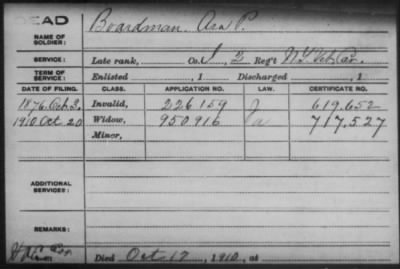 DEAD
NAME OF SOLDIER: Boardman, Asa P.
SERVICE: Late rank, Co. I, 2 Reg't N.Y. Vet. Cav.
TERM OF SERVICE: Enlisted , 1 Discharged , 1
DATE OF FILING. CLASS. APPLICATION NO. LAW. CERTIFICATE NO.
1876. Oct. 3. Invalid, 226159 619.652
1910 Oct 20 Widow, 950916 717.527
Minor,
ADDITIONAL SERVICES:
REMARKS:
Died Oct 17, 1910, at